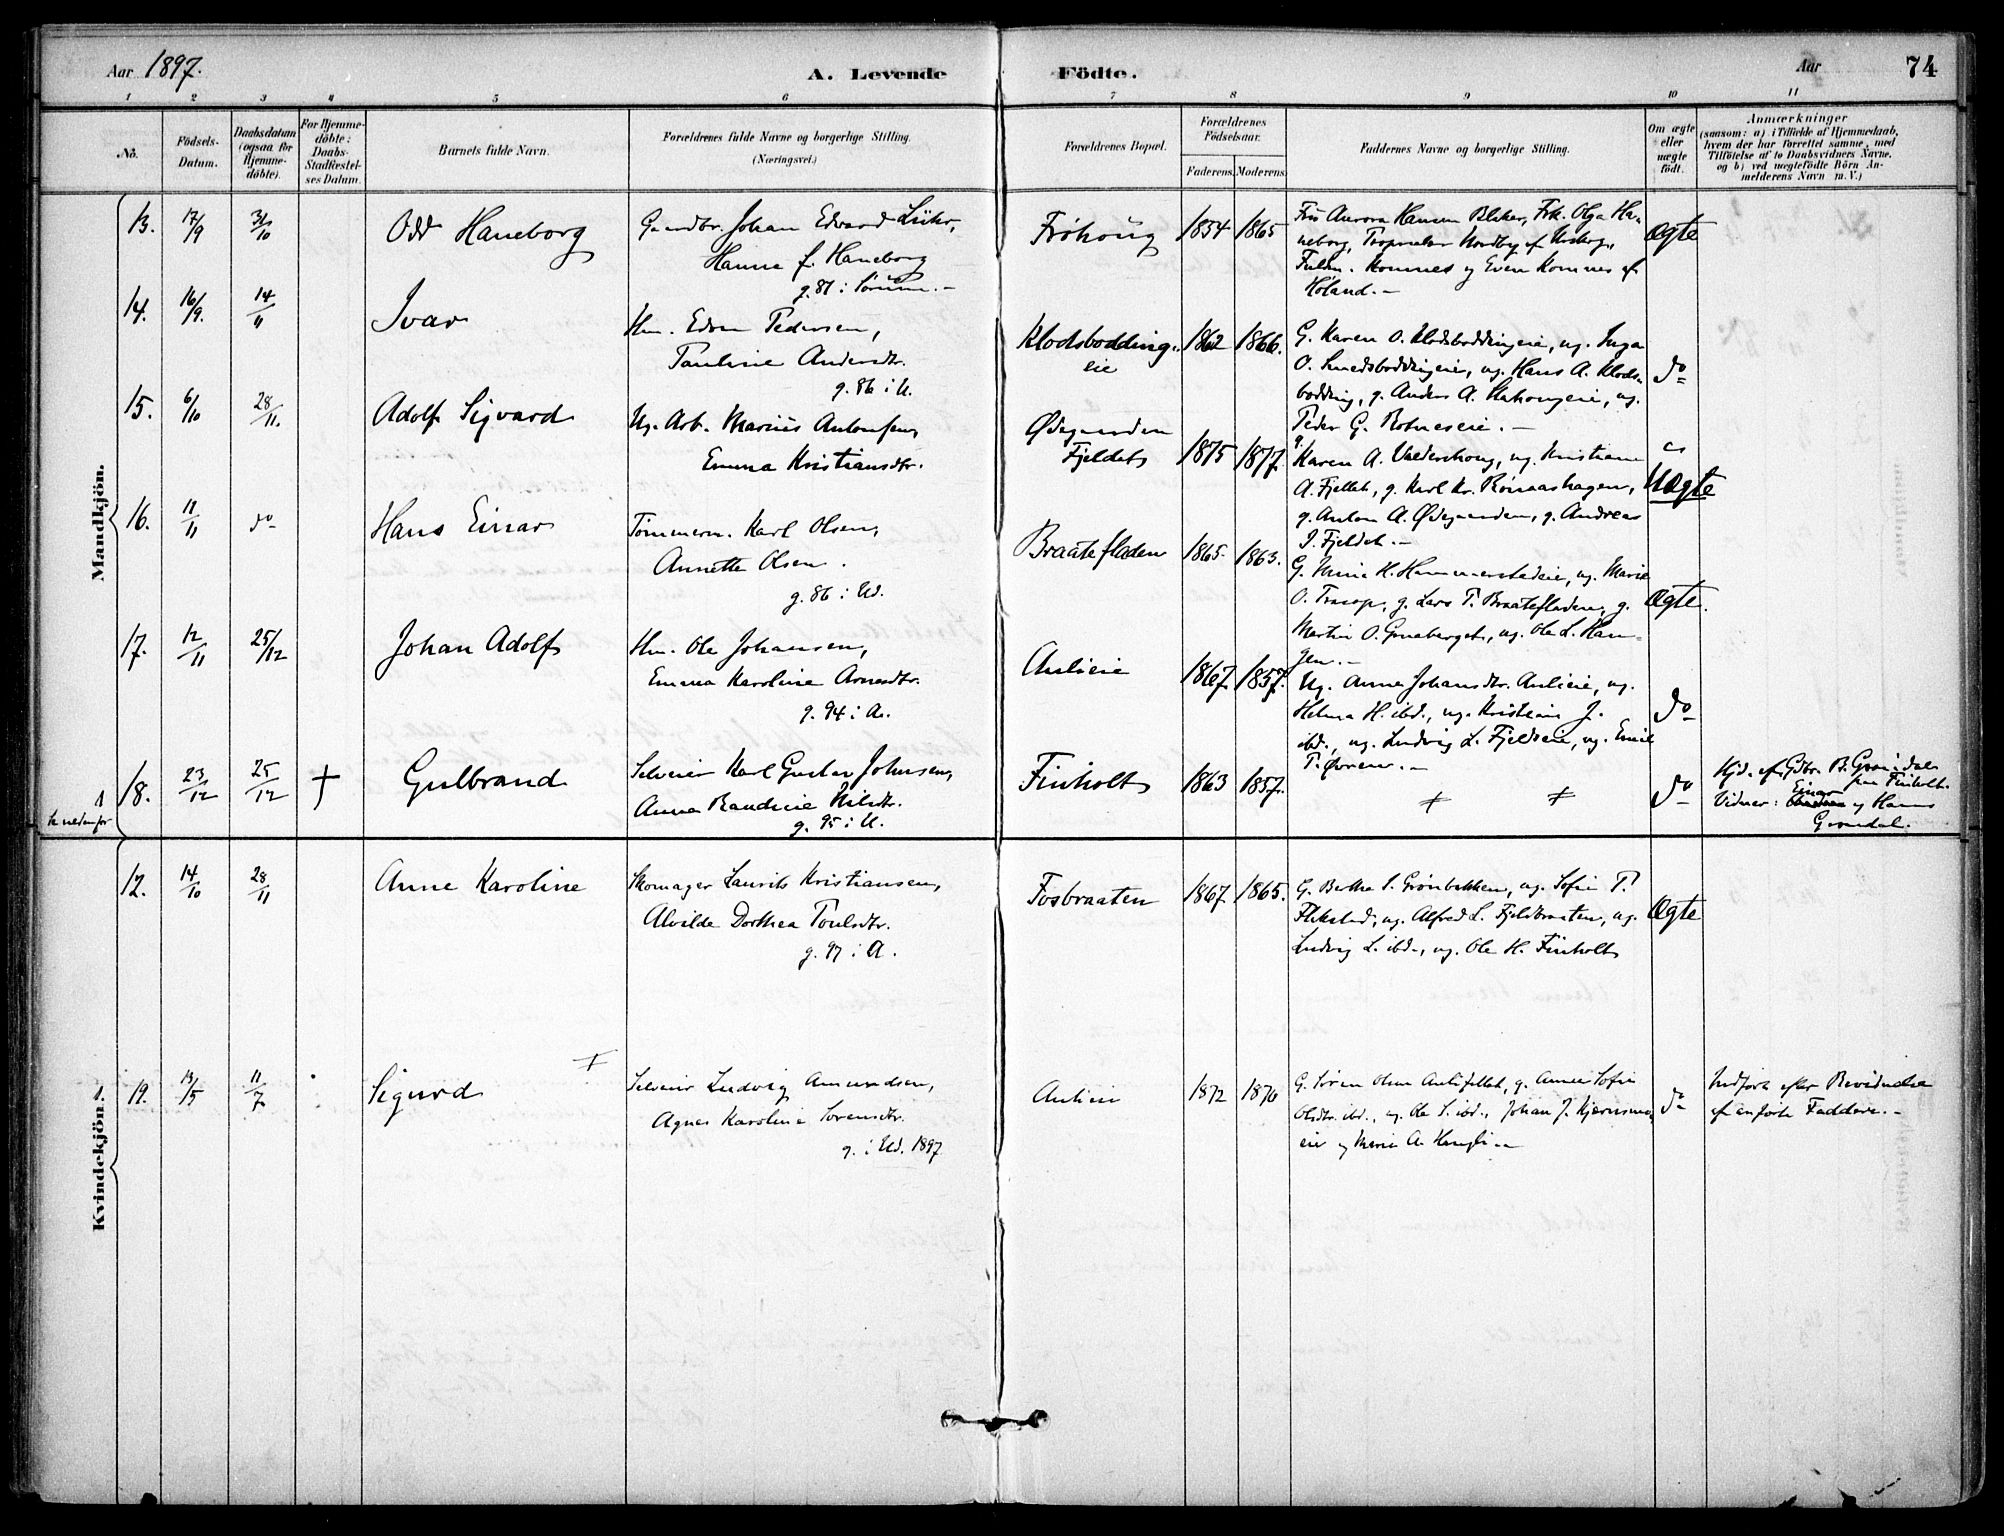 Aar 1897.
A. Levende Födte.
Aar 74
1 2 3 4 5 6 7 8 9 10 11
No.
Födsels-Datum.
Daabsdatum (ogsaa for Hjemmedöbte).
For Hjemmedöbte: Daabs-Stadfæstelses Datum.
Barnets fulde Navn.
Forældrenes fulde Navne og borgerlige Stilling. (Næringsvei.)
Forældrenes Bopæl.
Forældrenes Födselsaar.
Faderens. Moderens.
Faddernes Navne og borgerlige Stilling.
Om ægte eller uægte födt.
Anmærkninger
(saasom: a) i Tilfælde af Hjemmedaab,
hvem der har forrettet samme, med
Tilföielse af to Daabsvidners Navne,
og b) ved uægtefödte Börn An-
melderens Navn m. V.)
Mandkjön.
13. 17/9 31/10 Odd Haneborg
Gaardbr. Johan Edvard Lühr,
Hanna f. Haneborg
g. 87 i Sørum.-
Frøhaug 1854 1865
Fru Aurora Hamm Blaker, Frk. Olga Ha-
neborg,
Komnes og Even Komnes af
Høland.-
Ægte
14. 16/9. 14/11 Ivar
Hm. Edon Pedersen,
Pauline Andersdtr.
g. 86 i U.
Klodsbodding-
eie 1862 1866.
G. Karen O. Klodsboddingeie, ug. Inga
O. Smedsboddingeie, ug. Hans A. Klods-
bodding, g. Anders A. ug.
Peder G.
do
15. 6/10 28/11. Adolf Sigvard
Ug. Arb. Marius Antonsen,
Emma Kristiansdtr.
Ødegaarden
Fjeldet 1875 1877.
Karen A. ug. Kristiane
A. Fjellet, g. Karl Kr.
g. Anton A. Ødegaarden, g. Andreas
P. Fjeldet.-
Uægte
16. 11/11 do Hans Einar
Tømmerm. Karl Olsen,
Annette Olsen.
g. 86 i Ud.
Braatefladen 1865. 1863.
G. Mina H. Hammerstadeie, ug. Marie
O. g. Lars T. Braatefladen, g.
Martin O. ug. Ole L. Hau-
gen.-
Ægte.
17. 12/11 25/12 Johan Adolf
Hm. Ole Johansen,
Emma Karoline Arnesdtr.
g. 94 i A.
Aulieie 1867. 1857.
Ug. Anna Johansdtr. Aulieie, ug.
Helma H. ibd., ug. Kristian J.
ibd., ug. Ludvig L. Fjeldeie, ug. Emil
T.
do
18. 23/12 25/12 † Gulbrand
Selveier Karl Gustav Johnsen,
Anna Nilsdtr.
g. 95 i U.
Finholt 1863 1857.
do
Hjd. af Gdbr. B. Grøndal
paa Finholt.
Vidner: Einar og Hanna
Grøndal.
se nedenfor
Kvindekjön.
12. 14/10 28/11 Anne Karoline
Skomager Laurits Kristiansen,
Alvilde Dorthea Poulsdtr.
g. 97 i A.
Fosbraaten 1867. 1865.
G. Berthe S. Grønbekken, ug. Sofie T.
ug. Alfred L. Fjeldbraaten, ug.
Ludvig L. ibd., ug. Ole H. Finholt
Ægte
19. 13/5 11/7 Sigurd
Selveier Ludvig Amundsen,
Agnes Karoline Sørensdtr.
g. i Ud. 1897
Aulieie 1872 1876
G. Søren Olsen g. Anne Sofie
Olsdtr. ibd., ug. Ole S. ibd., Johan J.
eie og Maria A.
do
Indført efter Bevidnelse
af anførte Faddere.-